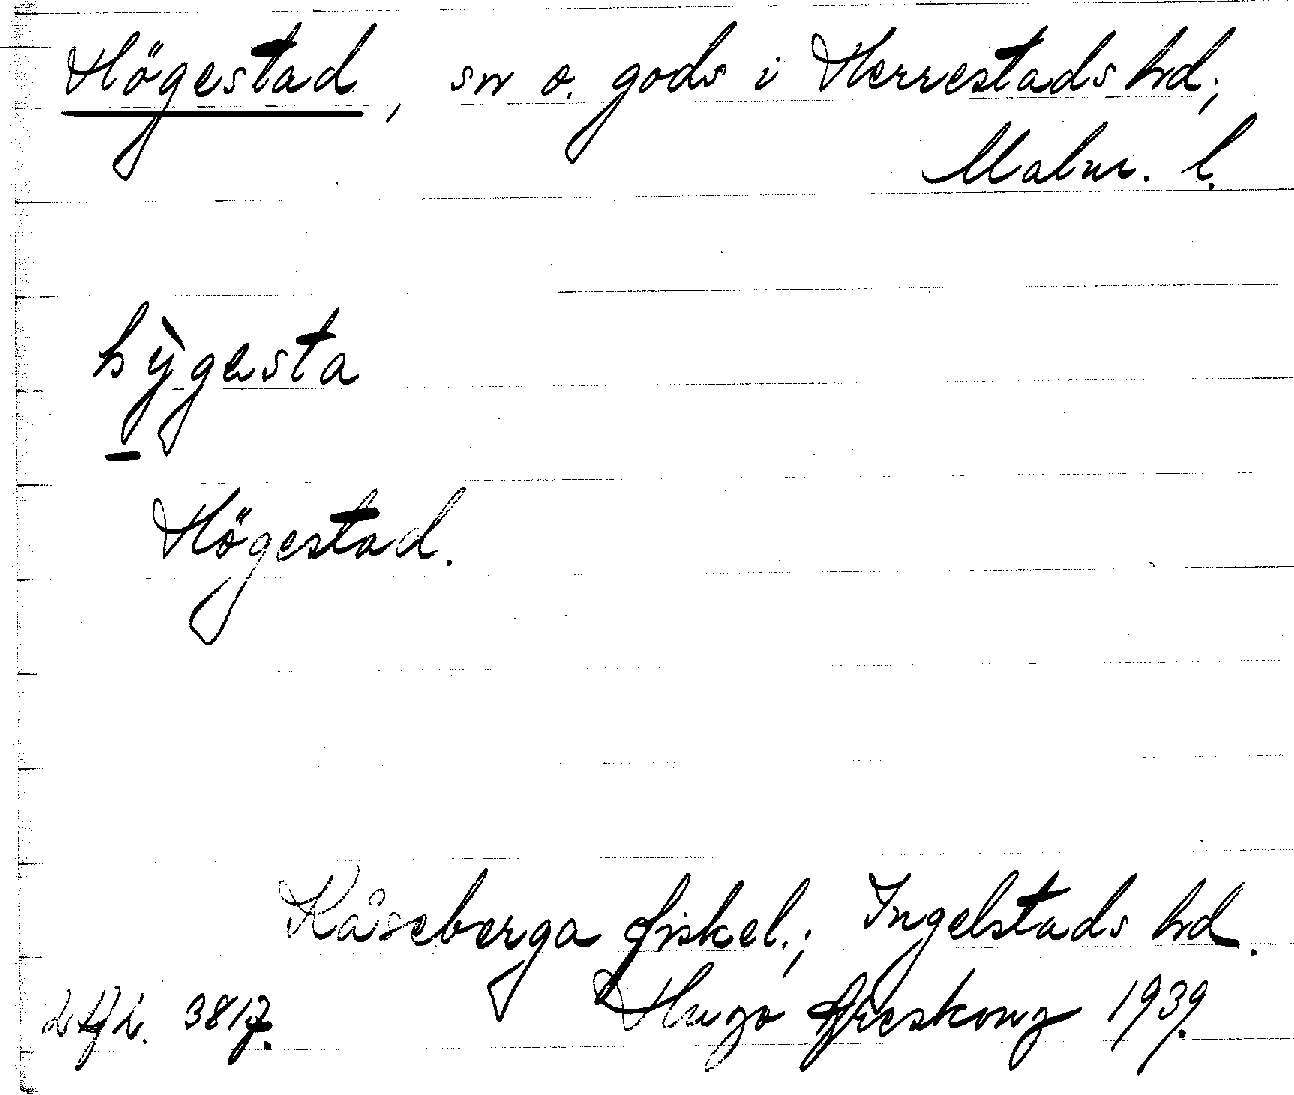 Högestad, sn o. gods i Herrestads hd;
Malm. l.
hỳgesta
Högestad.
Kåseberga fiskel.; Ingelstads hd.
3817. Hugo Areskoug 1939.